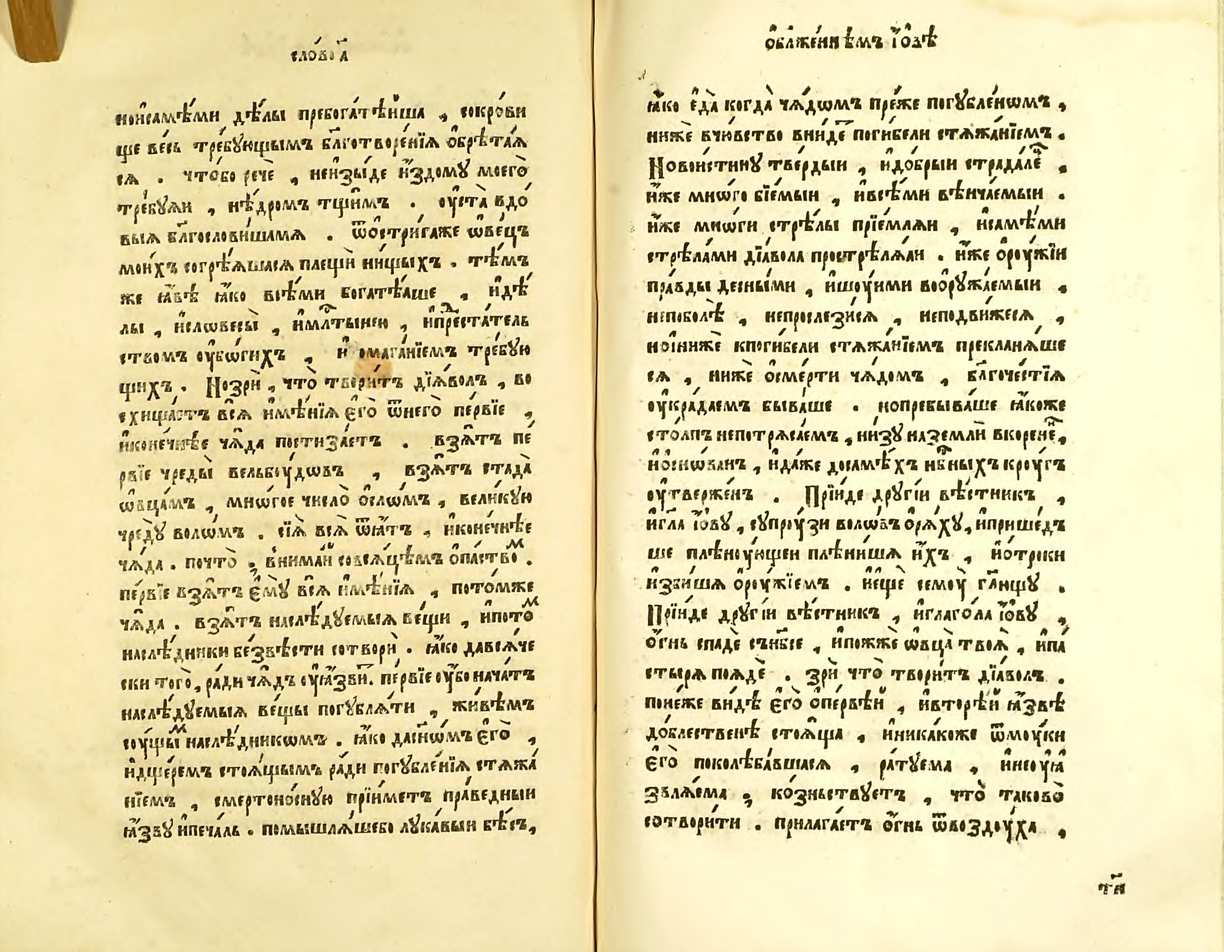 сло́во д҃
ноисамѣ́ми дѣ́лы пребога́тѣйша , сокро́ви
ще весь тре́бующымъ бл҃готворе́нїѧ ѡ҆брѣта́ѧ
сѧ . что́бо речѐ , неизы́де и҆здо́му моего̀
тре́буѧи , нѣ́дромъ тщи́мъ . оу҆ста̀ вдо
выѧ бл҃гослови́шамѧ . ѿостри́гаже ѡ҆ве́цъ
мои́хъ согрѣ́ѧшасѧ плещѝ ни́щыхъ . тѣ́мъ
же ꙗ҆́вѣ ꙗ҆́ко всѣ́ми богатѣ́ѧше , идѣ́
лы , исловесы̀ , и҆мл҃тынею , ипреста́тель
ствомъ оу҆бо́гихъ , и оmага́нїемъ тре́бую
щихъ . Но́зрѝ , что̀ твори́тъ дїѧ́волъ , во
схища́етъ всѧ̀ и҆мѣ́нїѧ є҆гѡ̀ ѿнего̀ пе́рвїе ,
иконе́чнѣе ча́да постиза́етъ . взѧ́тъ пе́
рвїе чреды̀ вельбоу́дѡвъ , взѧ́тъ стада̀
ѡ҆вца́мъ , мно́гое число̀ ѻ҆сло́мъ , вели́кую
чреду̀ воло́мъ . сїѧ̀ всѧ̀ ѿѧ́тъ , иконе́чнѣе
ча́да . почто̀ , внима́й совсѧ́цѣмъ ѻ҆па́ством .
пе́рвїе взѧ́тъ є҆мꙋ̀ всѧ̀ и҆мѣ́нїѧ , пото́мже
ча́да . взѧ́тъ наслѣ́дуемыѧ ве́щи , ипото́м
наслѣ́дники безвѣ́сти сотворѝ . ꙗ҆́ко давсѧ́че
ски того̀ , ра́ди ча́дъ оу҆ꙗ҆звѝ . пе́рвїе оу҆́бо нача́тъ
наслѣ́дуемыѧ ве́щы погублѧ́ти , живѣ́мъ
соу́щым наслѣ́дникѡмъ . ꙗ҆́ко дасн҃ѡмъ є҆гѡ̀ ,
идще́ремъ стоѧ́щымъ ра́ди погубле́нїѧ стѧжа́
нїемъ , смертоно́сную прїи́метъ пра́ведный
ꙗ҆́зву ипеча́ль . помышлѧ́шебо лука́вый бѣ́съ ,
ѻ҆блаже́ннѣмъ і҆́ѡвѣ
ꙗ҆́ко є҆да̀ когда̀ ча́дѡмъ пре́же погубле́нѡмъ ,
ниже́ вчю́вство вни́де поги́бели стѧжа́нїемъ .
Новои́стину тве́рдый , идо́брый страда́ле ,
и҆́же мно́го бїе́мый , ивсѣ́ми вѣнча́емый .
и҆́же мно́ги стрѣ́лы прїе́млѧи , исамѣ́ми
стрѣла́ми дїа́вола прострѣлѧ́ѧи . и҆́же ѻ҆роу́жїи
пра́вды десны́ми , ишоу́ими вооружа́емый ,
непоболѣ̀ , непрослези́сѧ , неподви́жесѧ ,
нои́ниже кпоги́бели стѧжа́нїемъ преклонѧ́ше
сѧ , ниже́ ѻ҆сме́рти ча́дом , бл҃гоче́стїѧ
оу҆кра́даемъ быва́ше . нопребыва́ше ꙗ҆́коже
сто́лпъ непотрѧса́емъ , ни́зу наземлѝ вкоре́не ,
иѻ҆сно́ванъ , ида́же досамѣ́хъ нб҃ныхъ кроу́гъ
оу҆твержен . Прїи́де дру́гїи вѣ́стникъ ,
игл҃а і҆́ѡву , супроу́зи воло́въ ѻ҆рѧ́ху , иприше́дъ
ше плѣноу́ющеи плѣни́шѧ и҆́хъ , иѻ҆́троки
изби́шѧ ѻ҆роу́жїемъ . иещѐ семоу̀ гл҃ющу .
Прїи́де дру́гїи вѣ́стникъ , иглаго́ла і҆́ѡву ,
ѻ҆́гнь спадѐ сънб҃се , ипожжѐ ѡ҆вца̀ твоѧ̀ , ипа́
стырѧ поѧдѐ . зрѝ что̀ твори́тъ дїа́волъ .
поне́же ви́дѣ є҆го̀ ѻ҆пе́рвѣй , ивторѣ́й ꙗ҆́звѣ
до́блественѣ стоѧ́ща , иника́коже ѿмоу́ки
є҆го̀ поколѣба́вшасѧ , ра́туема , инеоу҆ꙗ
звлѧ́ема , ко́зньствуетъ , что̀ таково̀
сотвори́ти . прилага́етъ ѻ҆́гнь ѿвозду́ха ,
т҃и